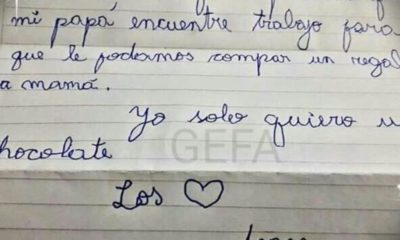 mi papá encuentre trabajo para
que le podamos compar un regal
a mamá.
Yo solo quiero u
hocolate
GEFA
Los ♡